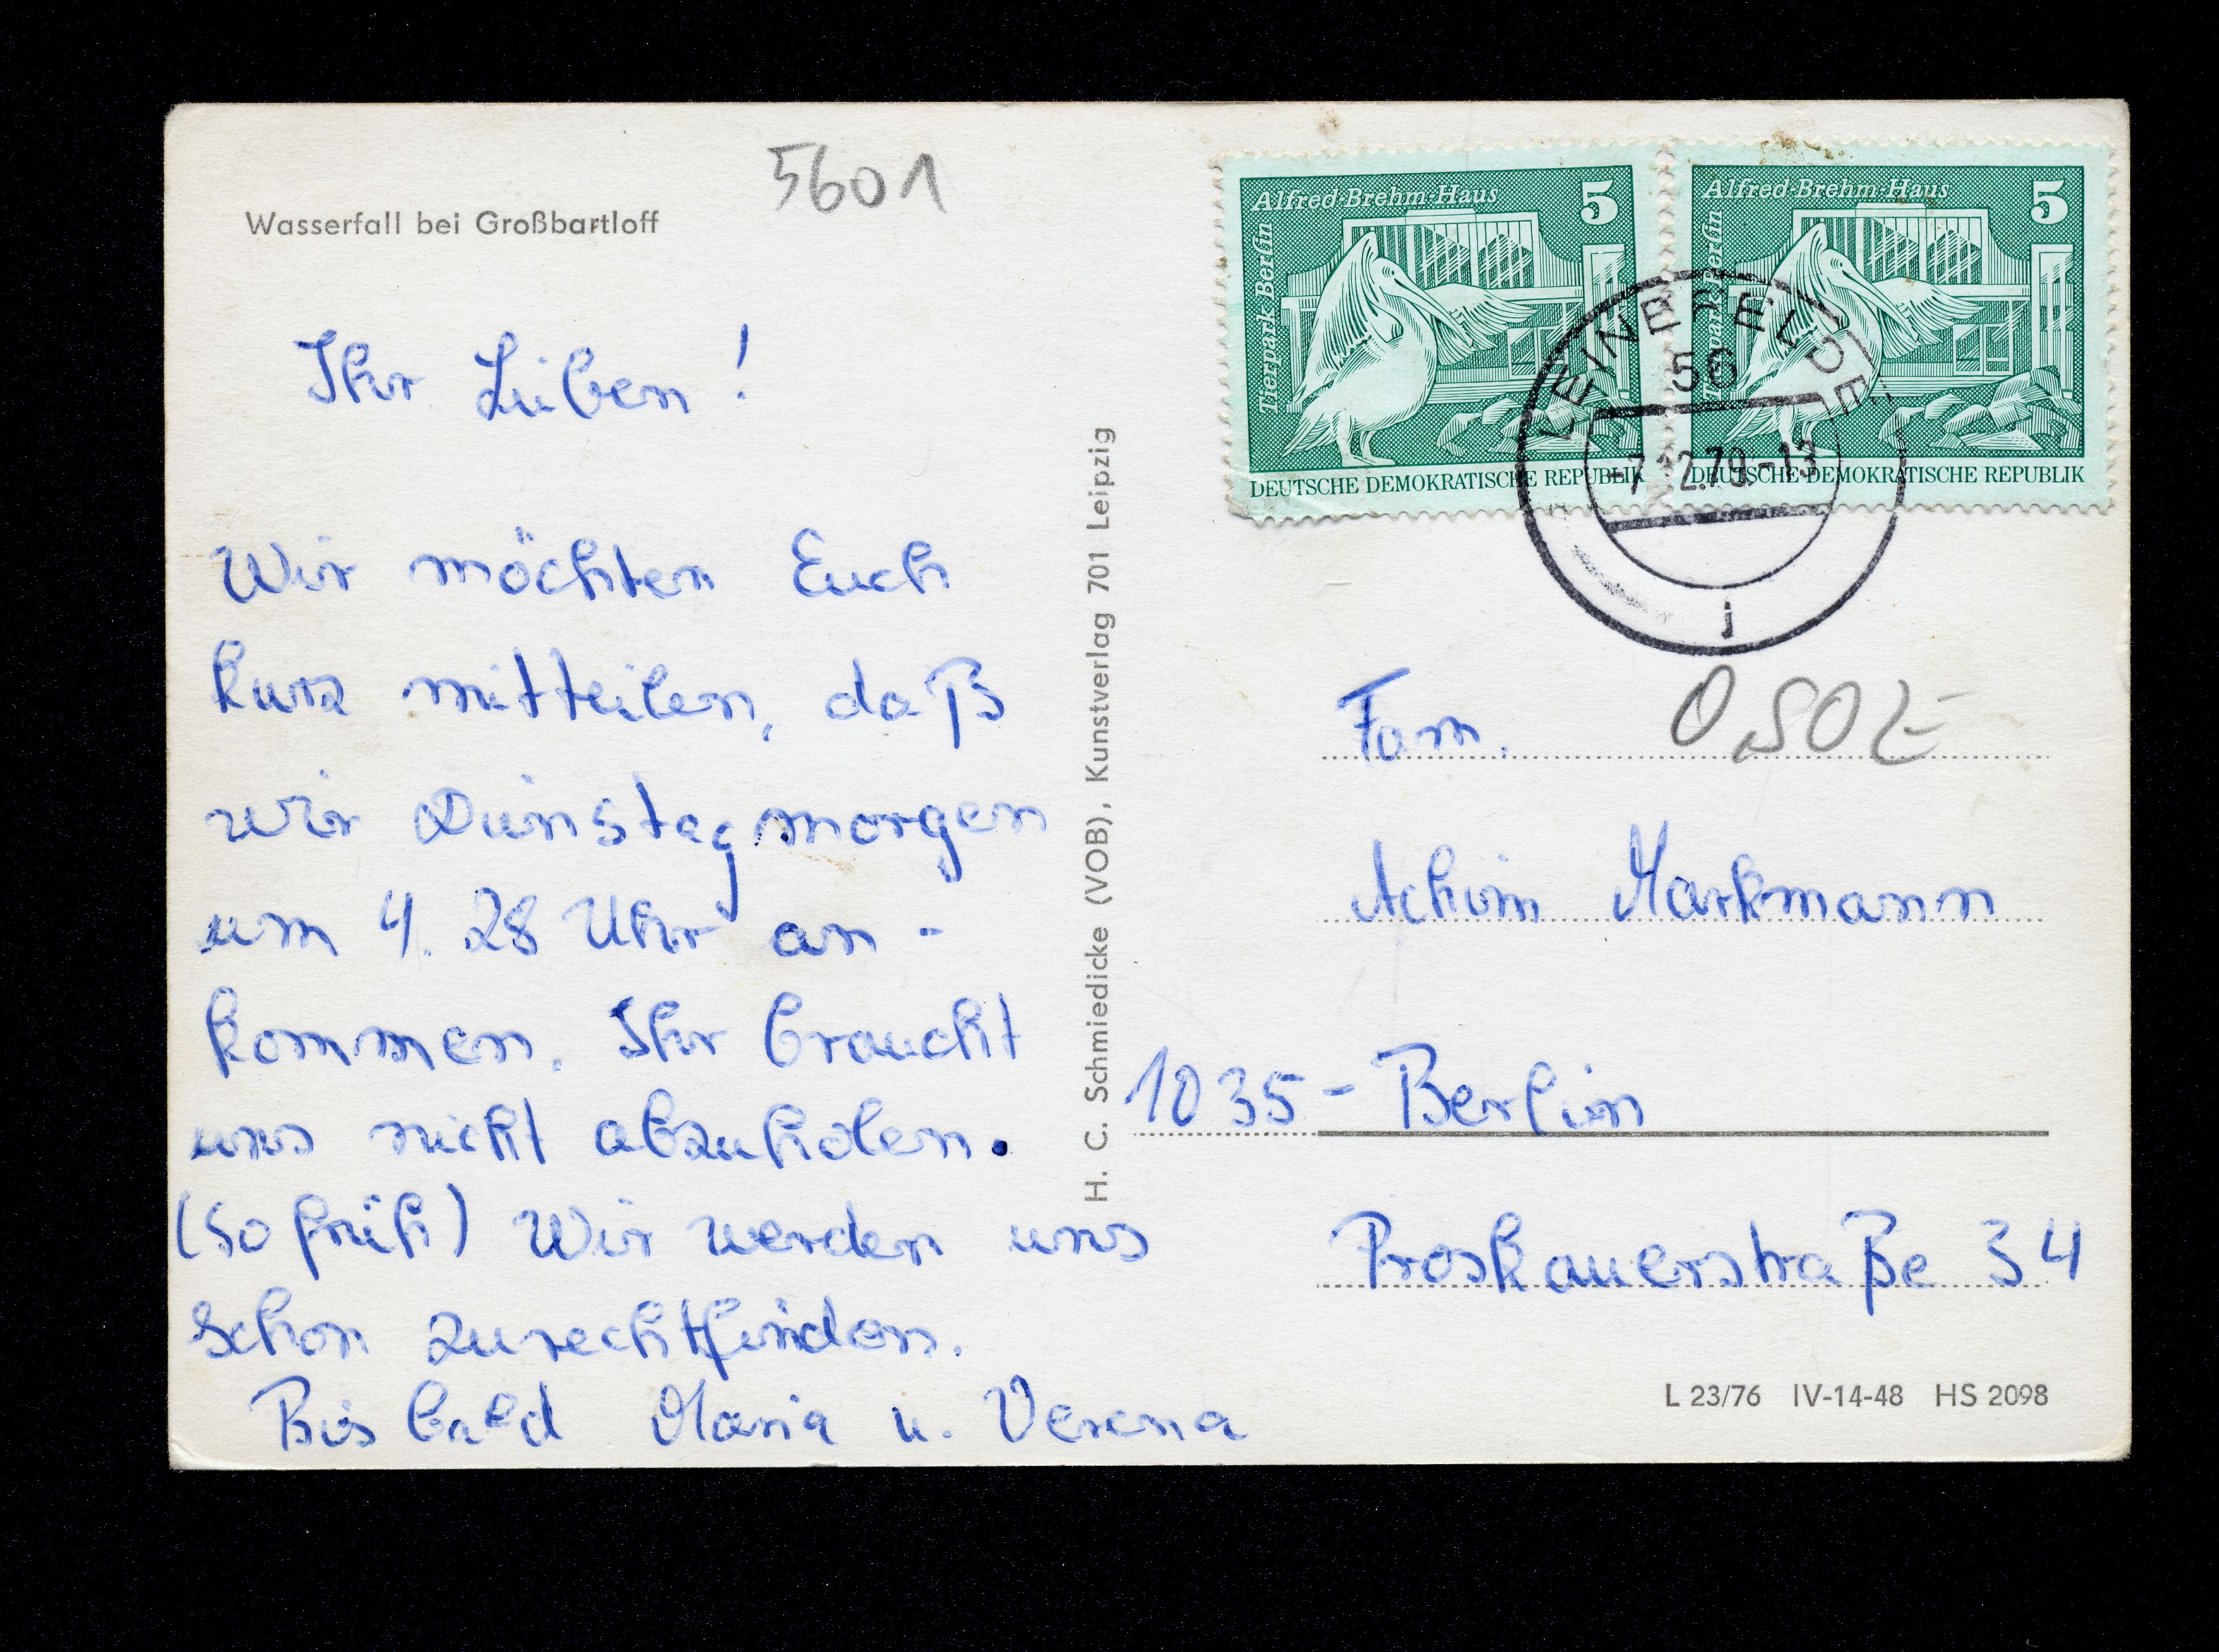 Wasserfall bei Großbartloff
5601
Ihr Lieben!
Wir möchten Euch
kurz mitteilen, daß
wir Dienstagmorgen
um 4.28 Uhr an-
kommen. Ihr braucht
uns nicht abzuholen.
(So früh) Wir werden uns
schon zurechtfinden.
Bis bald Maria u. Verena
H. C. Schmiedicke (VOB), Kunstverlag 701 Leipzig
Alfred-Brehm-Haus 5
Tierpark Berlin
DEUTSCHE DEMOKRATISCHE REPUBLIK
Alfred-Brehm-Haus 5
Tierpark Berlin
DEUTSCHE DEMOKRATISCHE REPUBLIK
LEINEFELDE
56
-7.12.79.-13
j
Fam.
Achim Markmann
1035-Berlin
Proskauerstraße 34
L 23/76 IV-14-48 HS 2098